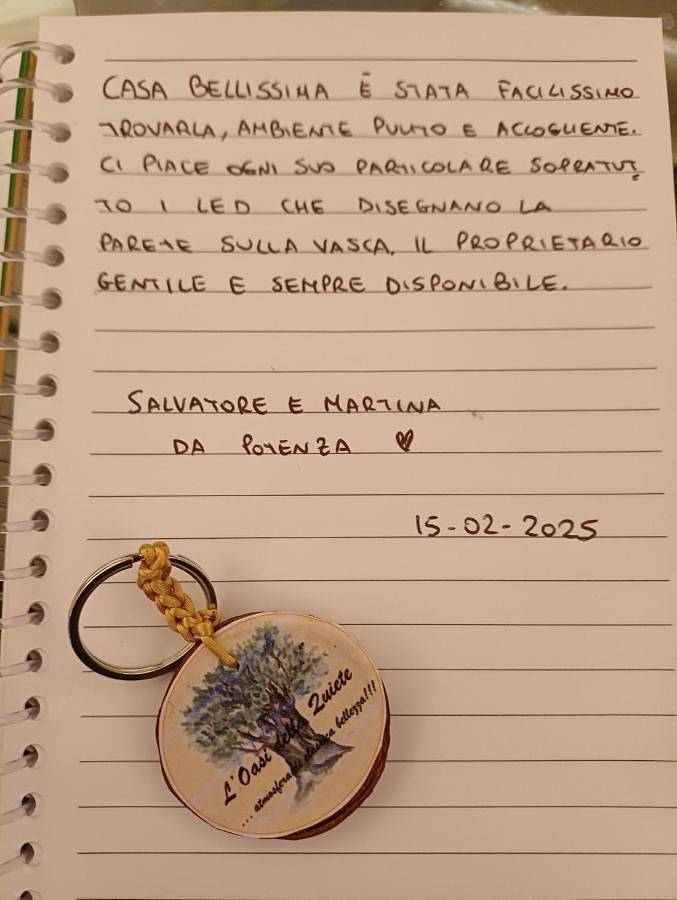 CASA BELLISSIMA È STATA FACILISSIMO
TROVARLA, AMBIENTE PULITO E ACCOGLIENTE.
CI PIACE OGNI SUO PARTICOLARE SOPRATUT
TO I LED CHE DISEGNANO LA
PARETE SULLA VASCA. IL PROPRIETARIO
GENTILE E SEMPRE DISPONIBILE.
SALVATORE E MARTINA
DA POTENZA ♥
15-02-2025
L'Oasi della Quiete
... atmosfera di classica bellezza!!!